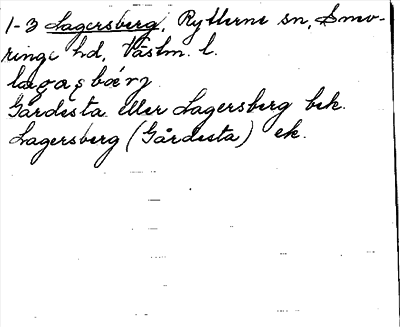 1-3 Lagersberg, Rytterne sn, Snev-
ringe hd, Västm. l.
Gärdesta eller Lagersberg bek.
Lagersberg (Gårdesta) ek.